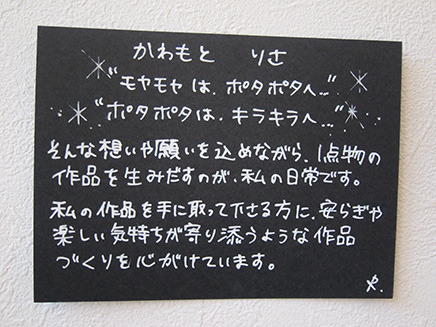 かわもと りさ
"モヤモヤは、ポタポタへ…"
"ポタポタは、キラキラへ…"
そんな想いや願いを込めながら、1点物の
作品を生みだすのが、私の日常です。
私の作品を手に取って下さる方に、安らぎや
楽しい気持ちが寄り添うような作品
づくりを心がけています。